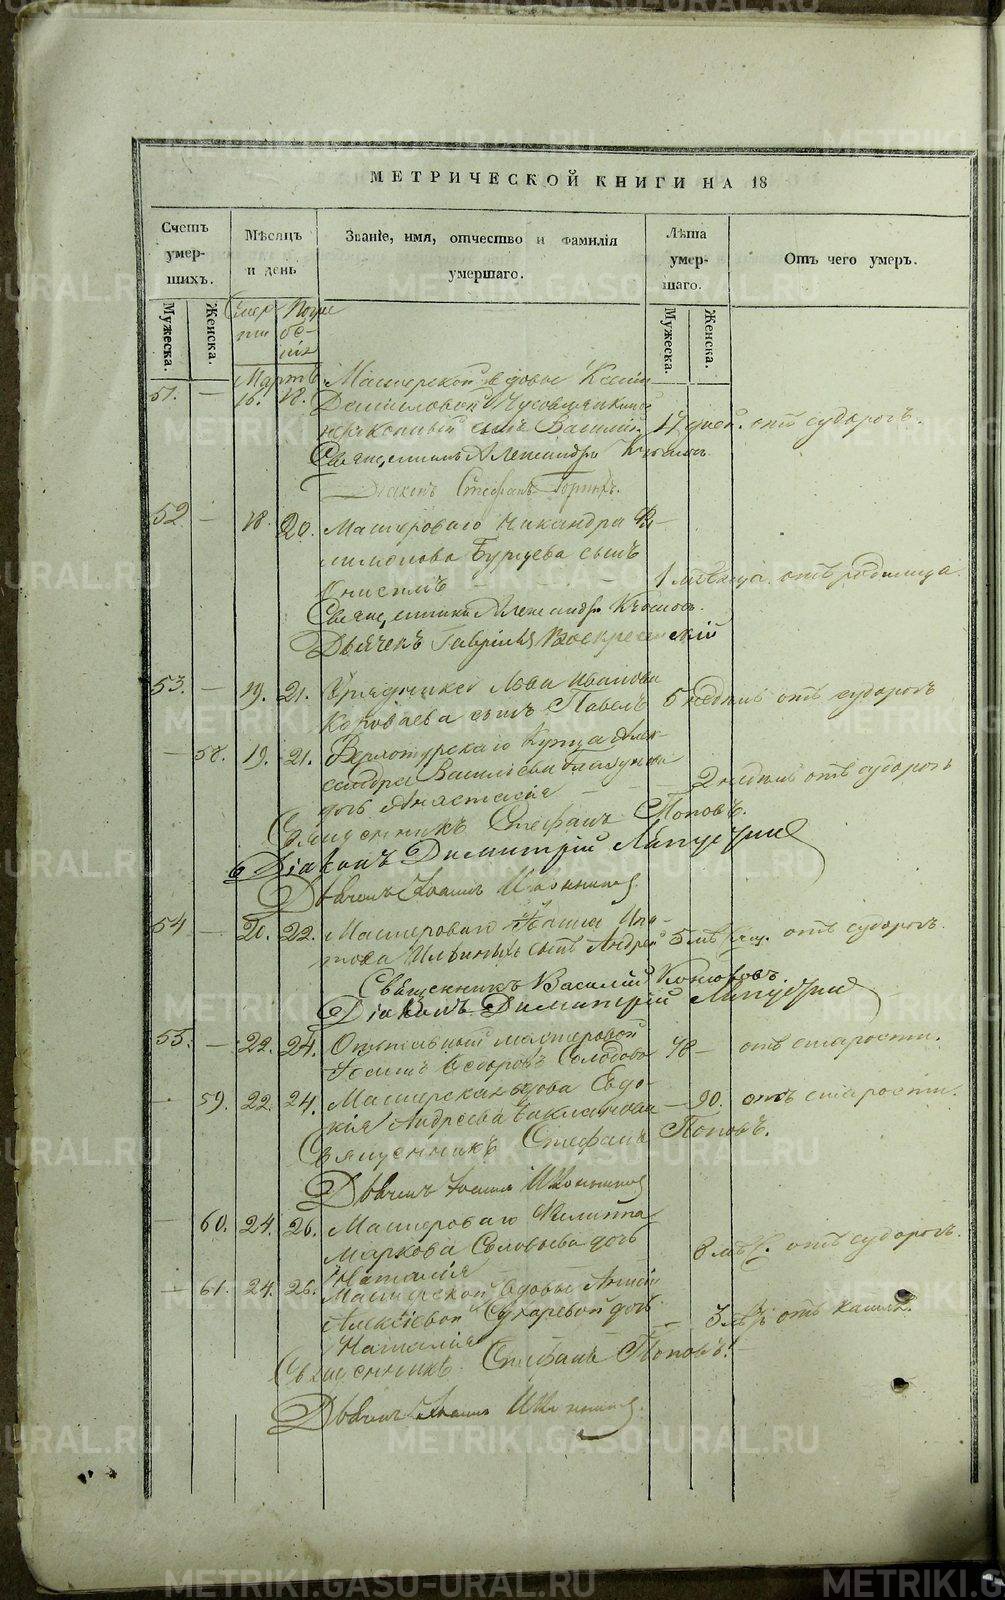 МЕТРИЧЕСКОЙ КНИГИ НА 18
Счетъ умер-шихъ. Мѣсяцъ и день Званіе, имя, отчество и фамилія умершаго. Лѣта умер-шаго. Отъ чего умеръ.
Мужеска. Женска. Смер ти Погре бе- нія Мужеска. Женска.
Мартъ Мастерской вдовы Ксеніи
51. — 16. 18. Даниловой
незаконный сынъ Василій. 17 дней. отъ судорогъ.
Священникъ Александръ
Діаконъ Стефанъ
52. — 18. 20. Мастероваго Никандра Фи-
лимонова Бурцева сынъ
Онисимъ — 1 мѣсяца. отъ родимца.
Священникъ Александръ
Дьячекъ Гавріилъ Воскресенскій
53. — 19. 21. Урядника Льва Иванова
Короваева сынъ Павелъ 5 недѣль отъ судорогъ
— 58. 19. 21. Верхотурскаго Купца Алек-
сандра Васильева
дочь Анастасія — 2 недѣль отъ судорогъ
Священникъ Стефанъ Поповъ.
Діаконъ Димитрій Ляпустинъ
Дьячекъ Іоаннъ Иконниковъ
54 — 20. 22. Мастероваго Іоанна Ипа-
това Ильиныхъ сынъ Андрей 5 мѣсяц. отъ судорогъ.
Священникъ Василій
Діаконъ Димитрій Ляпустинъ
55. — 22. 24. Отставный мастеровой
Іоаннъ Ѳедоровъ 78 — отъ старости.
— 59. 22. 24. Мастерская вдова Евдо-
кія Андреева — 90. отъ старости.
Священникъ Стефанъ Поповъ.
Дьячекъ Іоаннъ Иконниковъ
— 60. 24. 26. Мастероваго Филиппа
Маркова Соловьева дочь
Наталія 8 мѣс. отъ судорогъ.
— 61. 24. 26. Мастерской вдовы Анны
Алексіевой Сухаревой дочь
Наталія — 3 отъ кашля.
Священникъ Стефанъ Поповъ.
Дьячекъ Іоаннъ Иконниковъ
METRIKI.GASO-URAL.RU